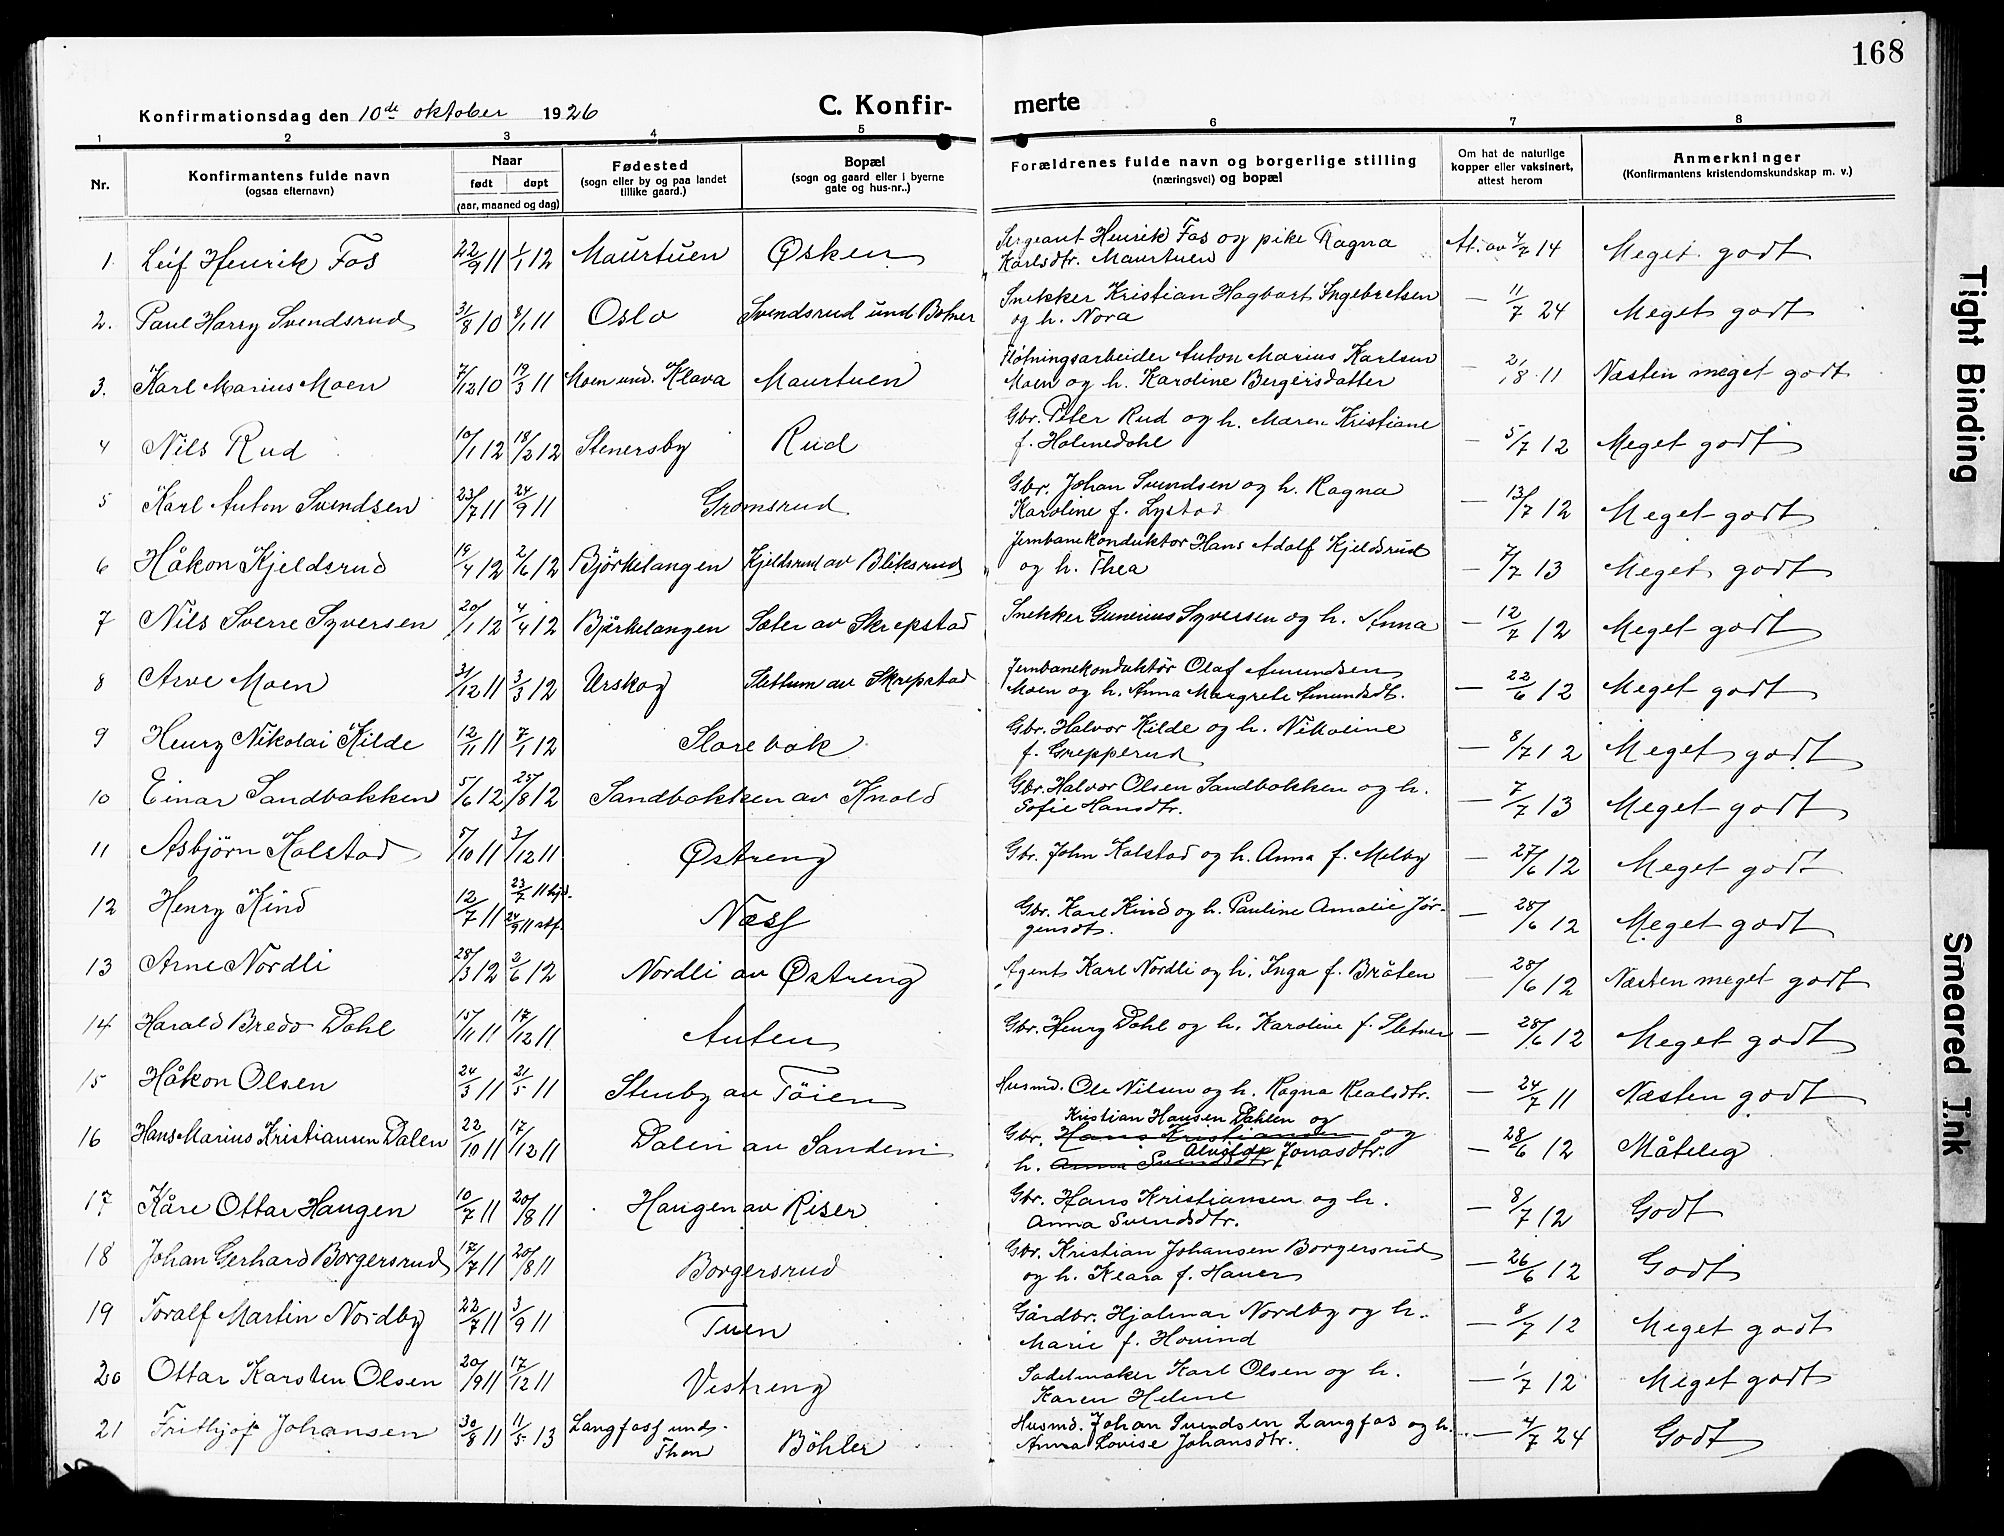 168
Konfirmationsdag den 10de oktober 1926
C. Konfir-
merte
1 2 3 4 5 6 7 8
Nr.
Konfirmantens fulde navn
(ogsaa efternavn)
Naar
født døpt
(aar, maaned og dag)
Fødested
(sogn eller by og paa landet
tillike gaard.)
Bopæl
(sogn og gaard eller i byerne
gate og hus-nr..)
Forældrenes fulde navn og borgerlige stilling
(næringsvei) og bopæl
Om hat de naturlige
kopper eller vaksinert,
attest herom
Anmerkninger
(Konfirmantens kristendomskundskap m. v.)
1. Leif Henrik Fos 22/9 11 1/1 12 Maurtuen Øsken Sergeant Henrik Fos og pike Ragna
Karlsdtr. Maurtuen At. av 4/7 14 Meget godt
2. Paul Harry Svendsrud 3/8 10 8/1 11 Oslo Svendsrud und Botner Snekker Kristian Hagbart Ingebretsen
og h. Nora — 11/7 24 Meget godt
3. Karl Marius Moen 7/12 10 19/3 11 Moen und. Klava Maurtuen Fløtningsarbeider Anton Marius Karlsen
Moen og h. Karoline Bergersdatter — 2/8 11 Næsten meget godt
4 Nils Rud 10/1 12 18/2 12 Stenersby Rud Gbr. Peter Rud og h. Maren Kristiane
f. Holmedahl — 5/7 12 Meget godt
5 Karl Anton Svendsen 23/7 11 24/9 11 Gromsrud Gbr. Johan Svendsen og h. Ragna
Karoline f. Lystad — 13/7 12 Meget godt
6 Håkon Kjeldsrud 19/4 12 2/6 12 Björkelangen Kjeldsrud av Bliksrud Jernbanekonduktor Hans Adolf Kjeldsrud
og h. Thea — 7/7 13 Meget godt
7 Nils Sverre Syversen 20/1 12 4/4 12 Bjørkelangen Sæter av Skrepstad Snekker Gunerius Syversen og h. Anna — 12/7 12 Meget godt
8 Arve Moen 31/12 11 3/3 12 Urskog Slettum av Skrepstad Jernbanekonduktør Olaf Amundsen
Moen og h. Anna Margrete Amundsdt. — 22/6 12 Meget godt
9 Henry Nikolai Kilde 12/11 11 7/1 12 Storebak Gbr. Halvor Kilde og h. Nikoline
f. Grepperud — 8/7 12 Meget godt
10 Einar Sandbakken 5/6 12 25/8 12 Sandbakken av Knold Gbr. Halvor Olsen Sandbakken og h.
Sofie Hansdtr. — 7/7 13 Meget godt
11 Asbjörn Kolstad 5/10 11 3/12 11 Østreng Gbr. John Kolstad og h. Anna f. Melby — 27/6 12 Meget godt
12 Henry Kind 12/7 11 23/7 11 hjd. 24/9 11 stf. Næss Gbr. Karl Kind og h. Pauline Amalie Jør-
gensdt. — 28/6 12 Meget godt
13 Arne Nordli 28/3 12 2/6 12 Nordli av Østreng Agent Karl Nordli og h. Inga f. Bråten — 28/6 12 Næsten meget godt
14 Harald Bredo Dahl 15/11 11 17/12 11 Auten Gbr. Henry Dahl og h. Karoline f. Sletner — 28/6 12 Meget godt
15 Håkon Olsen 24/3 11 21/5 11 Stenby av Töien Husmd. Ole Nilsen og h. Ragna Realsdtr. — 24/7 11 Næsten godt
16 Hans Marius Kristiansen Dalen 22/10 11 17/12 11 Dalen av Sandem Kristian Hansen Dahlen og
Gbr. Hans Kristiansen og
h. Anna Svendsdtr. Alvilde Jonasdtr. — 28/6 12 Måtelig
17 Kåre Ottar Haugen 10/7 11 20/8 11 Haugen av Riser Gbr. Hans Kristiansen og h.
Anna Svendsdtr. — 8/7 12 Godt
18 Johan Gerhard Borgersrud 17/7 11 20/8 11 Borgersrud Gbr. Kristian Johansen Borgersrud
og h. Klara f. Hauer — 26/6 12 Godt
19 Toralf Martin Nordby 22/7 11 3/9 11 Tuen Gårdbr. Hjalmar Nordby og h.
Marie f. Hovind — 8/7 12 Meget godt
20 Ottar Karsten Olsen 20/9 11 17/12 11 Vestreng Sadelmaker Karl Olsen og h.
Karen Helene — 1/7 12 Meget godt
21 Frithjof Johansen 30/8 11 11/5 13 Langfoss und.
Thon Böhler Husmd. Johan Svendsen Langfos og h.
Anna Lovise Johansdtr. — 4/7 24 Godt
Tight Binding
Smeared Ink